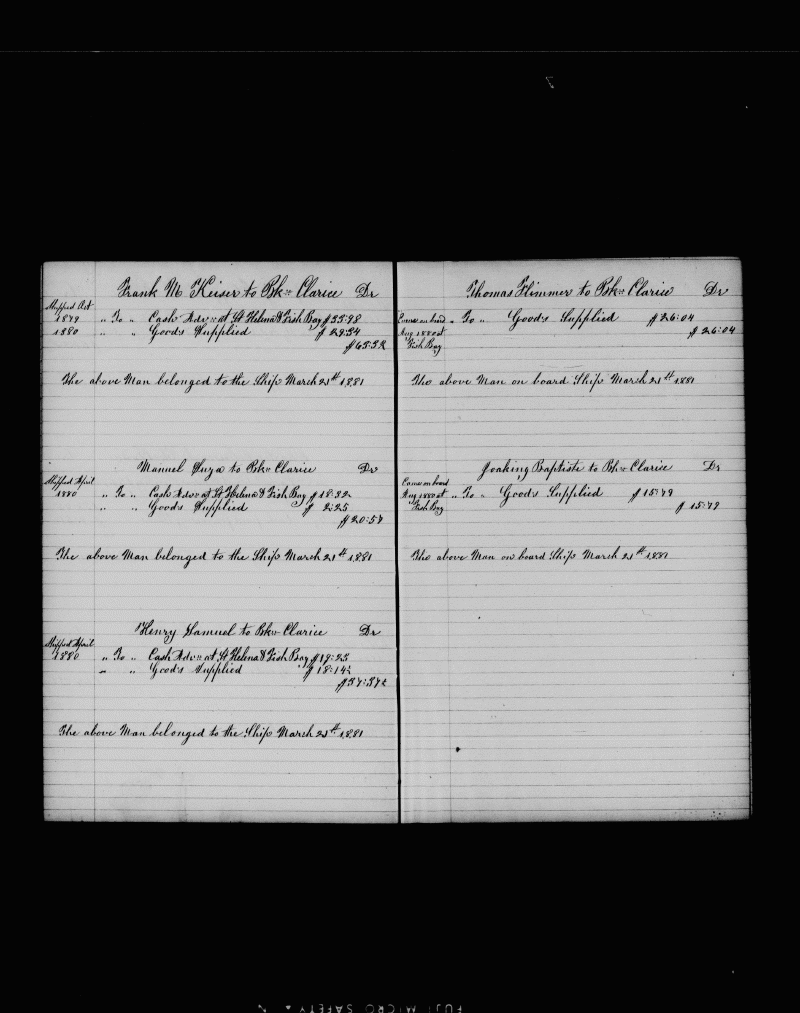 Frank M Keiser to Bk Clarice Dr
Shipped Oct
1879 " To " Cash Adv at St Helena & Fish Bay $35:98
1880 " " Goods Supplied $ 29:54
$65:52
The above Man belonged to the Ship March 21st 1881
Manuel Suza to Bk Clarice Dr
Shipped April
1880 " To " Cash Adv at St Helena & Fish Bay $18:32
" " Goods Supplied $ 2:25
$20:57
The above Man belonged to the Ship March 21st 1881
Henry Samuel to Bk Clarice Dr
Shipped April
1880 " To " Cash Adv at St Helena & Fish Bay $19:23
" " Goods Supplied $18:14½
$37:37½
The above Man belonged to the Ship March 21st 1881
Thomas Himmer to Bk Clarice Dr
Came on board " To " Goods Supplied $26:04
Aug 1880 at $26:04
Fish Bay
The above Man on board Ship March 21st 1881
Joaking Baptiste to Bk Clarice Dr
Came on board
Aug 1880 at " To " Goods Supplied $15:79
Fish Bay $15:79
The above Man on board Ship March 21st 1881
FUJI MICRO SAFETY